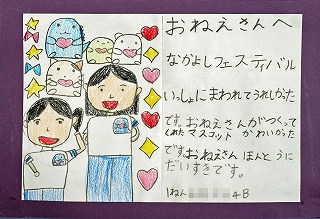 おねえさんへ
なかよしフェスティバル
いっしょにまわれてうれしかった
です。おねえさんがつくって
くれたマスコット かわいかった
です。おねえさん ほんとうに
だいすきです。
1ねん 4B